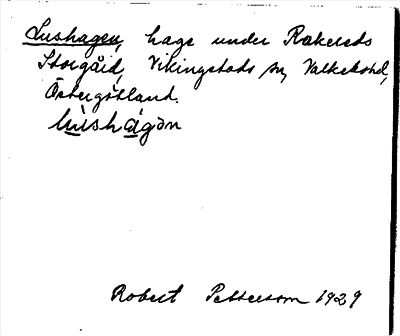 Lushagen, hage under Rakereds
Storgård, Vikingstads sn, Valkebo hd,
Östergötland.
lùshàgən
Robert Pettersson 1929